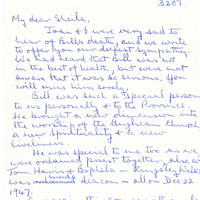 3207.
My dear Sheila,
Joan & I were very sad to
hear of Bill's death, and we want
to offer you our deepest sympathy.
We had heard that Bill was not
in the best of health, but were not
aware that it was so serious. You
will miss him sorely.
Bill was such a special person
to us personally & to the Province.
He brought a new dimension into
the worship of the Anglican Church
a new Spirituality & a new
liveliness.
He was special to me too as we
were ordained priest together, also with
Tom Hamis &
was made deacon — all on Dec 22
1947.